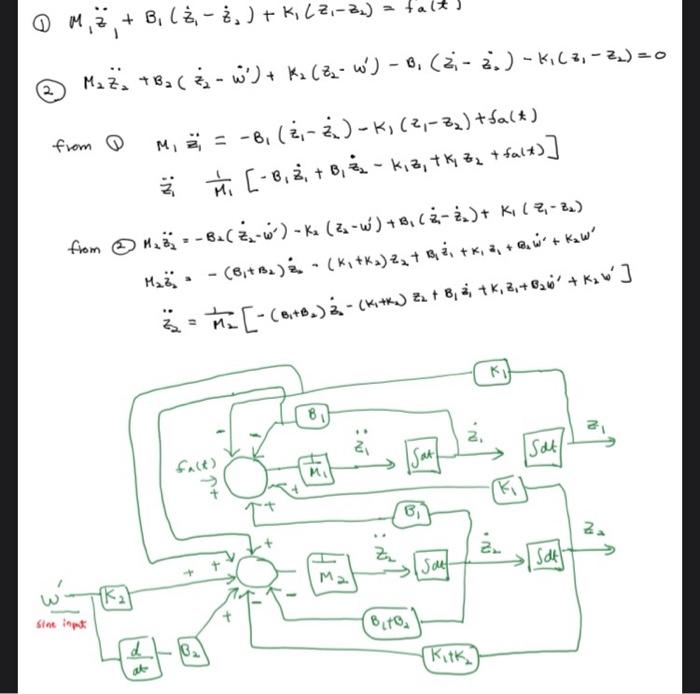 ① M₁z̈₁ + B₁(ż₁ - ż₂) + K₁(z₁-z₂) = fa(t)
② M₂z̈₂ + B₂(ż₂ - ẇ') + K₂(z₂-w') - B₁(ż₁- ż₂) - K₁(z₁-z₂)=0
from ① M₁ z̈₁ = -B₁(ż₁-ż₂)-K₁(z₁-z₂)+fa(t)
z̈₁ 1/M₁ [-B₁ż₁ + B₁ż₂ - K₁z₁+K₁z₂ + fa(t)]
from ② M₂z̈₂ = -B₂(ż₂-ẇ') -K₂(z₂-w')+B₁(ż₁-ż₂)+ K₁(z₁-z₂)
M₂z̈₂ = -(B₁+B₂)ż₂ - (K₁+K₂)z₂+B₁ż₁+K₁z₁+B₂ẇ'+K₂w'
z̈₂ = 1/M₂ [-(B₁+B₂)ż₂-(K₁+K₂) z₂+ B₁ż₁+K₁z₁+B₂ẇ' + K₂w']
K₁
B₁
- -
fa(t) + 1/M₁ z̈₁ ∫dt ż₁ ∫dt z₁
+
K₁
+
B₁
+
w' K₂ + + 1/M₂ z̈₂ ∫dt ż₂ ∫dt z₂
sine input
+ - -
B₁+B₂
d/dt B₂
K₁+K₂